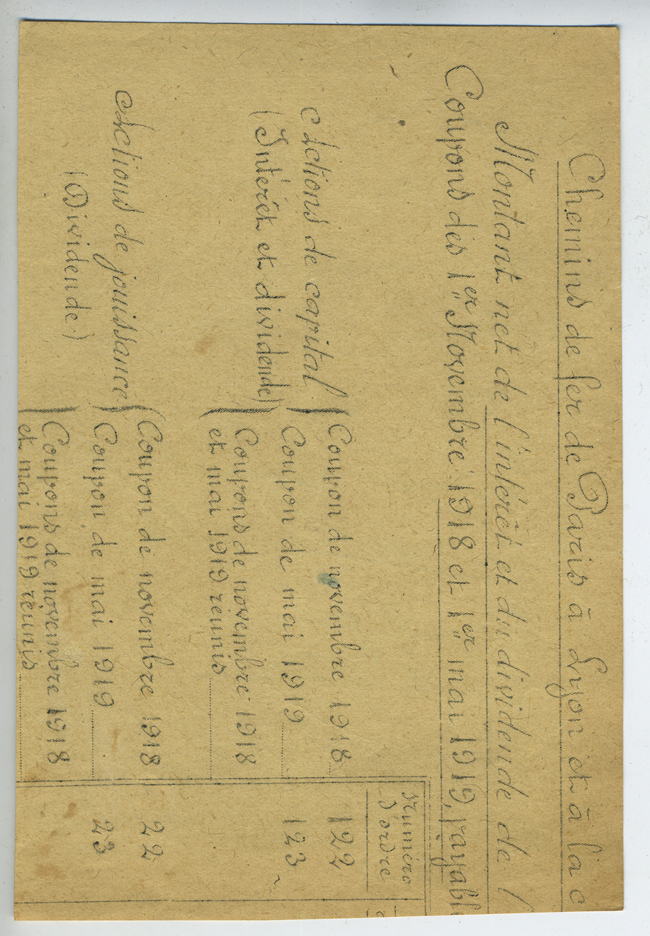 Chemins de fer de Paris à Lyon et à la
Montant net de l'intérêt et du dividende de l'
Coupons des 1er Novembre 1918 et 1er mai 1919, payabl
Numéro
d'ordre
Actions de capital
(Intérêt et dividende)
Coupon de novembre 1918 122
Coupon de mai 1919 123
Coupons de novembre 1918
et mai 1919 réunis
Actions de jouissance
(Dividende)
Coupon de novembre 1918 22
Coupon de mai 1919 23
Coupons de novembre 1918
et mai 1919 réunis